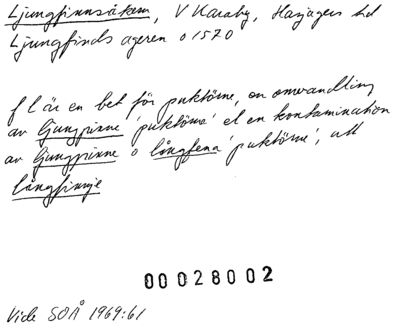 Ljungfinnsåkern, V Karaby, Harjagers hd
Ljungfinds ageren o 1570
f l är en bet för puktörne, en omvandling
av ljungpinne 'puktörne' el en kontamination
av ljungpinne o långfena 'puktörne', alt
långfinnje
00028002
Vide SOÅ 1969:61